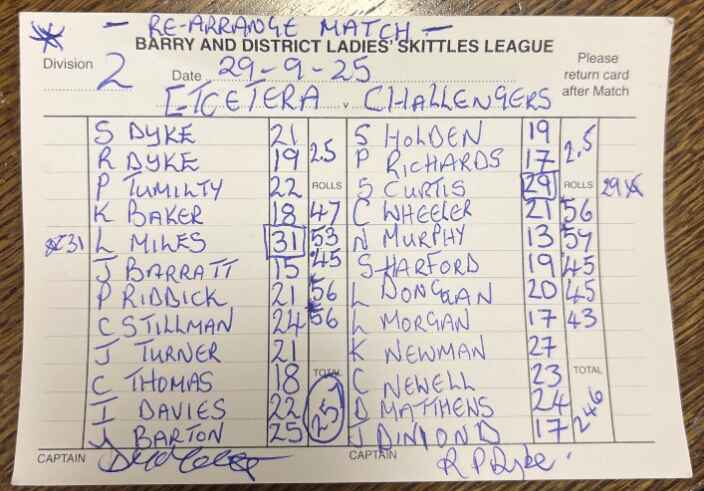 - RE-ARRANGE MATCH -
BARRY AND DISTRICT LADIES' SKITTLES LEAGUE
Division 2 Date 29-9-25 Please return card after Match
ETCETERA v CHALLENGERS
S DYKE 21 S HOLDEN 19
R DYKE 19 2.5 P RICHARDS 17 2.5
P TUMILTY 22 ROLLS S CURTIS 29 ROLLS 29
K BAKER 18 47 C WHEELER 21 56
31 L MILES 31 53 N MURPHY 13 57
J BARRATT 15 45 S HARFORD 19 45
P RIDDICK 21 56 L DONGGAN 20 45
C STILLMAN 24 56 L MORGAN 17 43
J TURNER 21 K NEWMAN 27
C THOMAS 18 TOTAL C NEWELL 23 TOTAL
I DAVIES 22 257 D MATTHENS 24 246
BARTON 25 J DIMOND 17
CAPTAIN CAPTAIN R P Dyke.